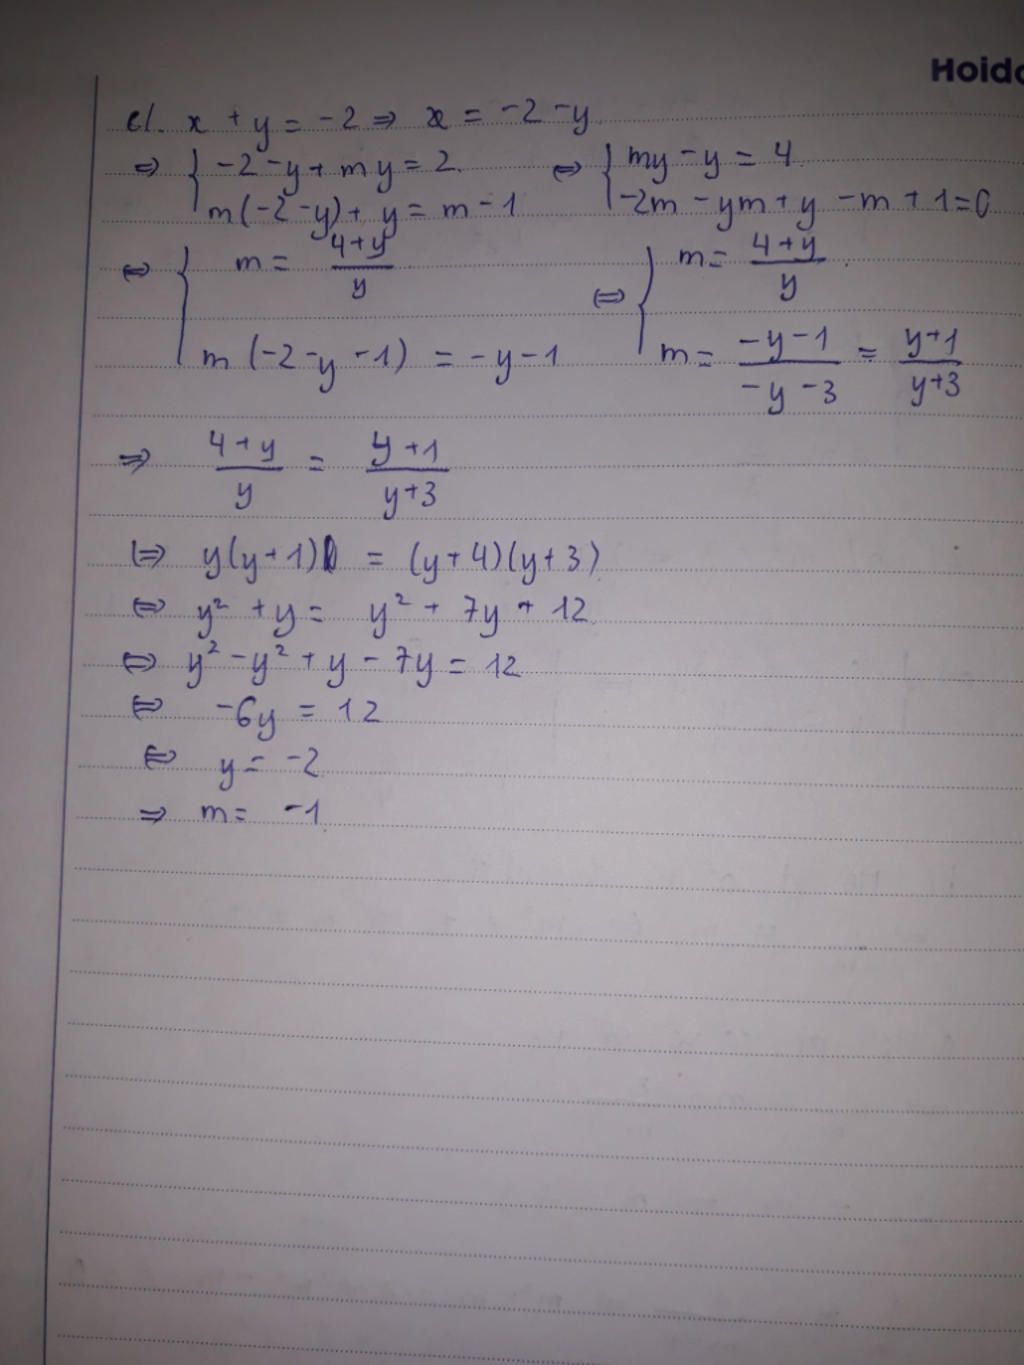 Hoidc
c/. x + y = -2 ⇒ x = -2 -y.
⇒ { -2 -y + my = 2. ⇔ { my - y = 4.
m(-2 -y) + y = m - 1 -2m - ym + y - m + 1 = 0
⇔ { m = (4+y)/y ⇔ { m = (4+y)/y.
m (-2 -y -1) = -y -1 m = (-y -1)/(-y -3) = (y+1)/(y+3)
⇒ (4+y)/y = (y+1)/(y+3)
⇔ y(y+1) = (y+4)(y+3)
⇔ y² + y = y² + 7y + 12
⇔ y² - y² + y - 7y = 12
⇔ -6y = 12
⇔ y = -2
⇒ m = -1